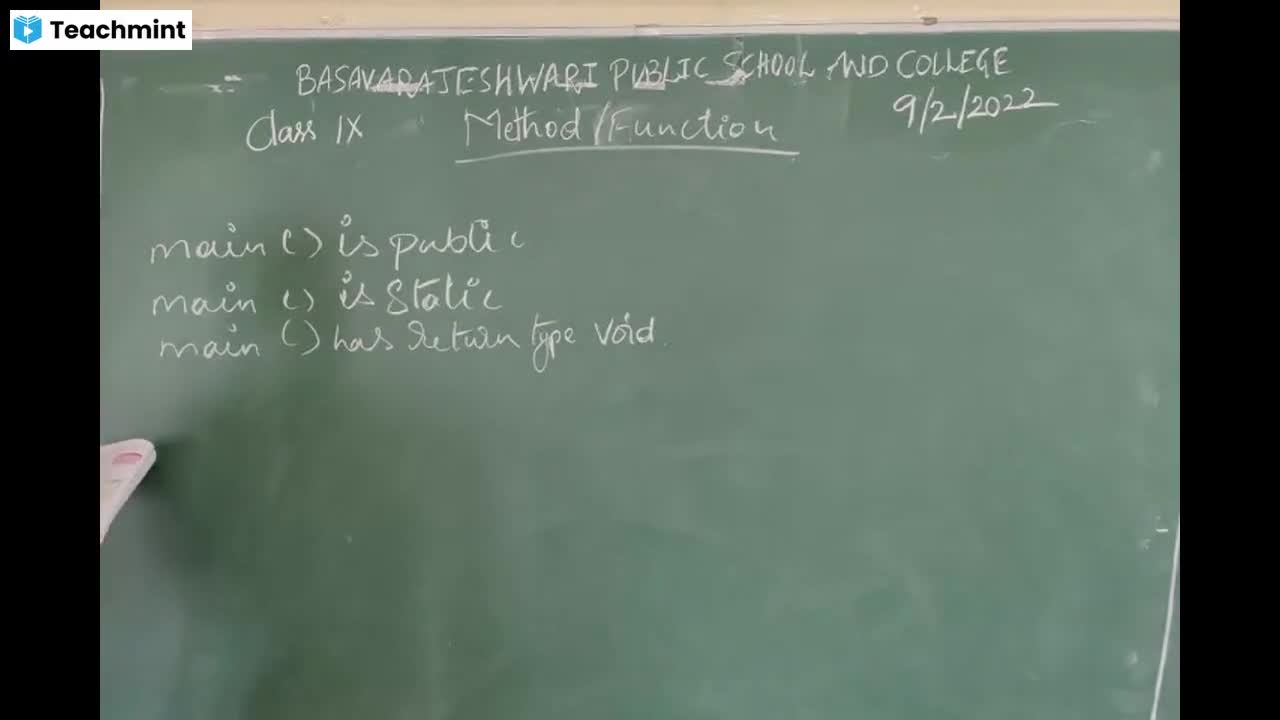 Teachmint
BASAVARAJESHWARI PUBLIC SCHOOL AND COLLEGE
Class IX Method/Function 9/2/2022
main () is public
main () is static
main () has return type void.